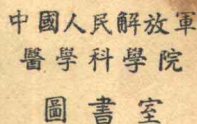 中國人民解放軍
醫學科學院
圖書室